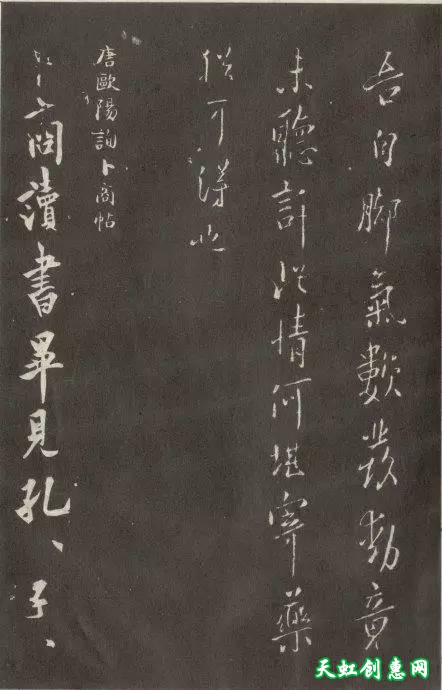 吾自脚氣數發動竟
未聽許此情何堪寄藥
猶可得也
唐歐陽詢卜商帖
卜商讀書畢見孔、子、
天虹创惠网